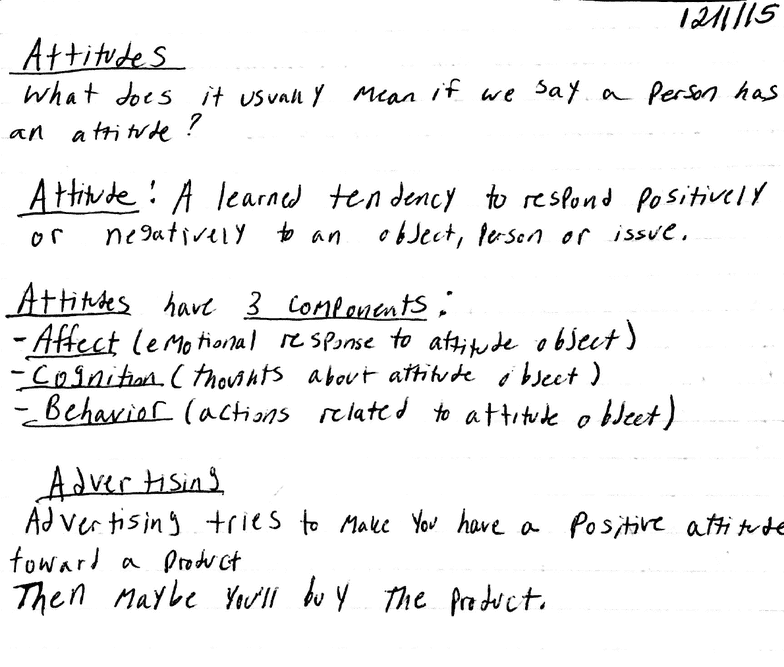 12/1/15
Attitudes
What does it usually mean if we say a person has
an attitude?
Attitude: A learned tendency to respond positively
or negatively to an object, person or issue.
Attitudes have 3 components:
- Affect (emotional response to attitude object)
- Cognition (thoughts about attitude object)
- Behavior (actions related to attitude object)
Advertising
Advertising tries to make you have a positive attitude
toward a product
Then maybe you'll buy the product.